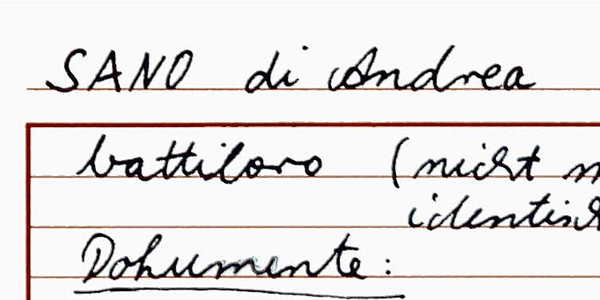 SANO di Andrea
battiloro (nicht
identisch
Dokumente: